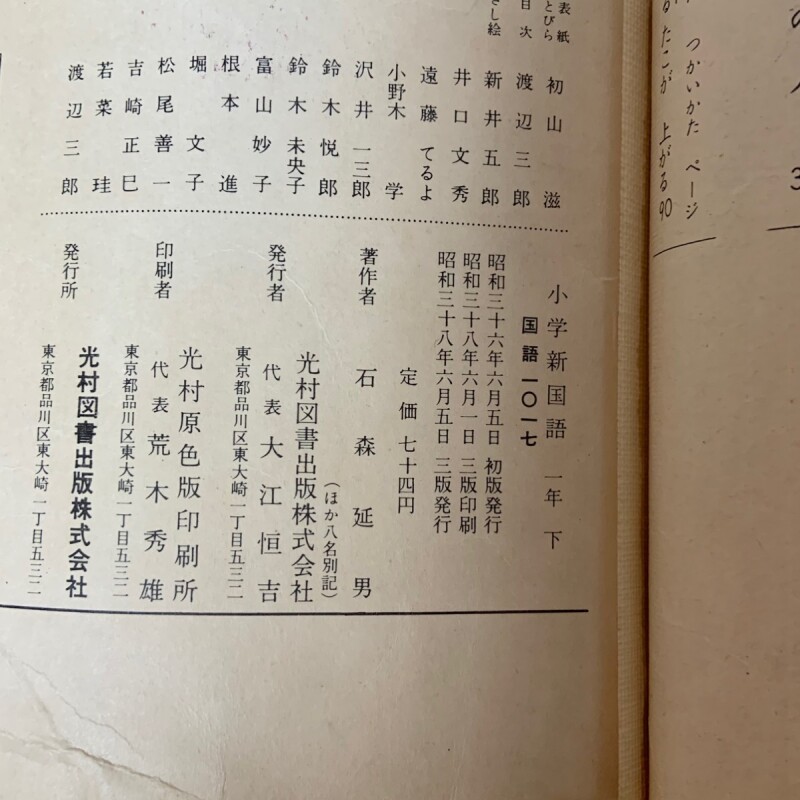 つかいかた ページ
たこが 上がる 90
3
表紙
とびら
目次
さし絵
初山 滋
渡辺三郎
新井五郎
井口文秀
遠藤てるよ
小野木 学
沢井一三郎
鈴木悦郎
鈴木未央子
富山妙子
根本 進
堀 文子
松尾善一
吉崎正巳
若菜 珪
渡辺三郎
小学新国語 一年 下
国語一〇一七
昭和三十六年六月五日 初版発行
昭和三十八年六月一日 三版印刷
昭和三十八年六月五日 三版発行
定価七十四円
著作者 石森延男
(ほか八名別記)
発行者 光村図書出版株式会社
代表 大江恒吉
東京都品川区東大崎一丁目五三二
印刷者 光村原色版印刷所
代表 荒木秀雄
東京都品川区東大崎一丁目五三二
発行所 光村図書出版株式会社
東京都品川区東大崎一丁目五三二